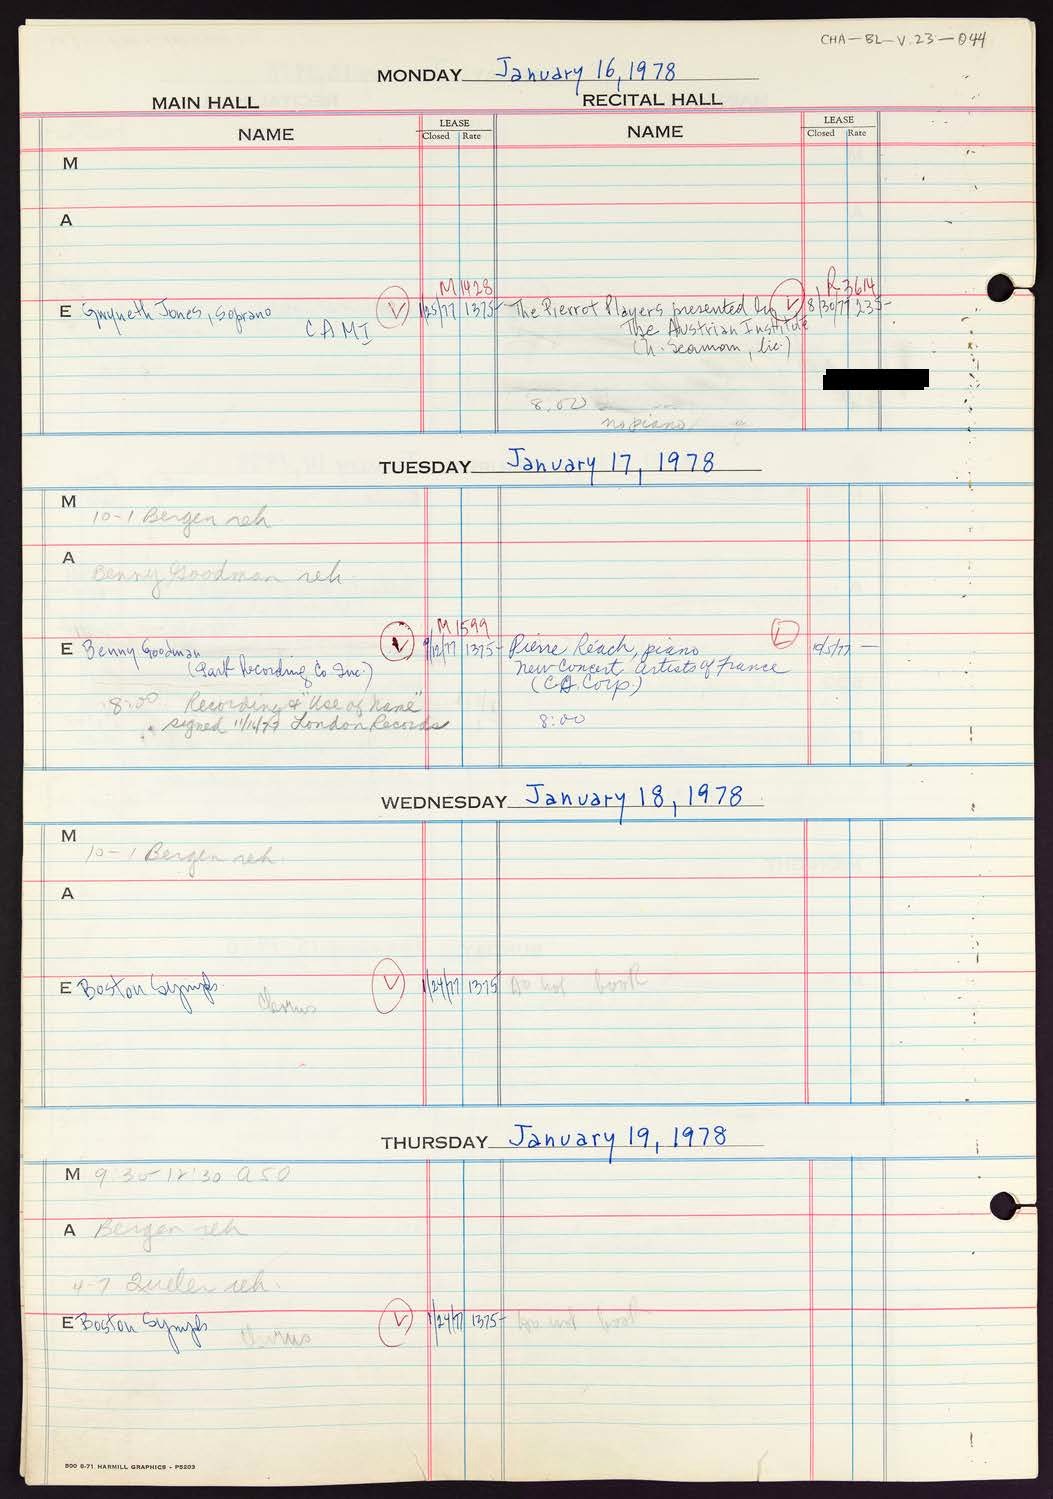 CHA-BL-V.23-044
MONDAY January 16, 1978
MAIN HALL
RECITAL HALL
NAME
LEASE
Closed Rate
NAME
LEASE
Closed Rate
M
A
M 1428
R 3614
E Gwyneth Jones, Soprano
V
1/25/77 1375-
The Pierrot Players presented by
V
8/30/77 235-
CAMI
The Austrian Institute
(N. Seaman, lic.)
8:00
no piano
TUESDAY January 17, 1978
M
10-1 Bergen reh
A
Benny Goodman reh
M 1599
E Benny Goodman
V
9/12/77 1375-
Pierre Réach, piano
L
10/5/77 —
(Park Recording Co Inc.)
New Concert Artists of France
(CA Corp.)
8:00 Recording & "Use of Name"
signed 11/16/77 London Records
8:00
WEDNESDAY January 18, 1978
M
10-1 Bergen reh.
A
E Boston Symph.
V
1/24/77 1375
Do not book
Chorus
THURSDAY January 19, 1978
M 9:30-12:30 ASO
A Bergen reh
4-7 Queler reh.
E Boston Symph
V
1/24/77 1375-
Do not book
Chorus
500 8-71 HARMILL GRAPHICS - P5203